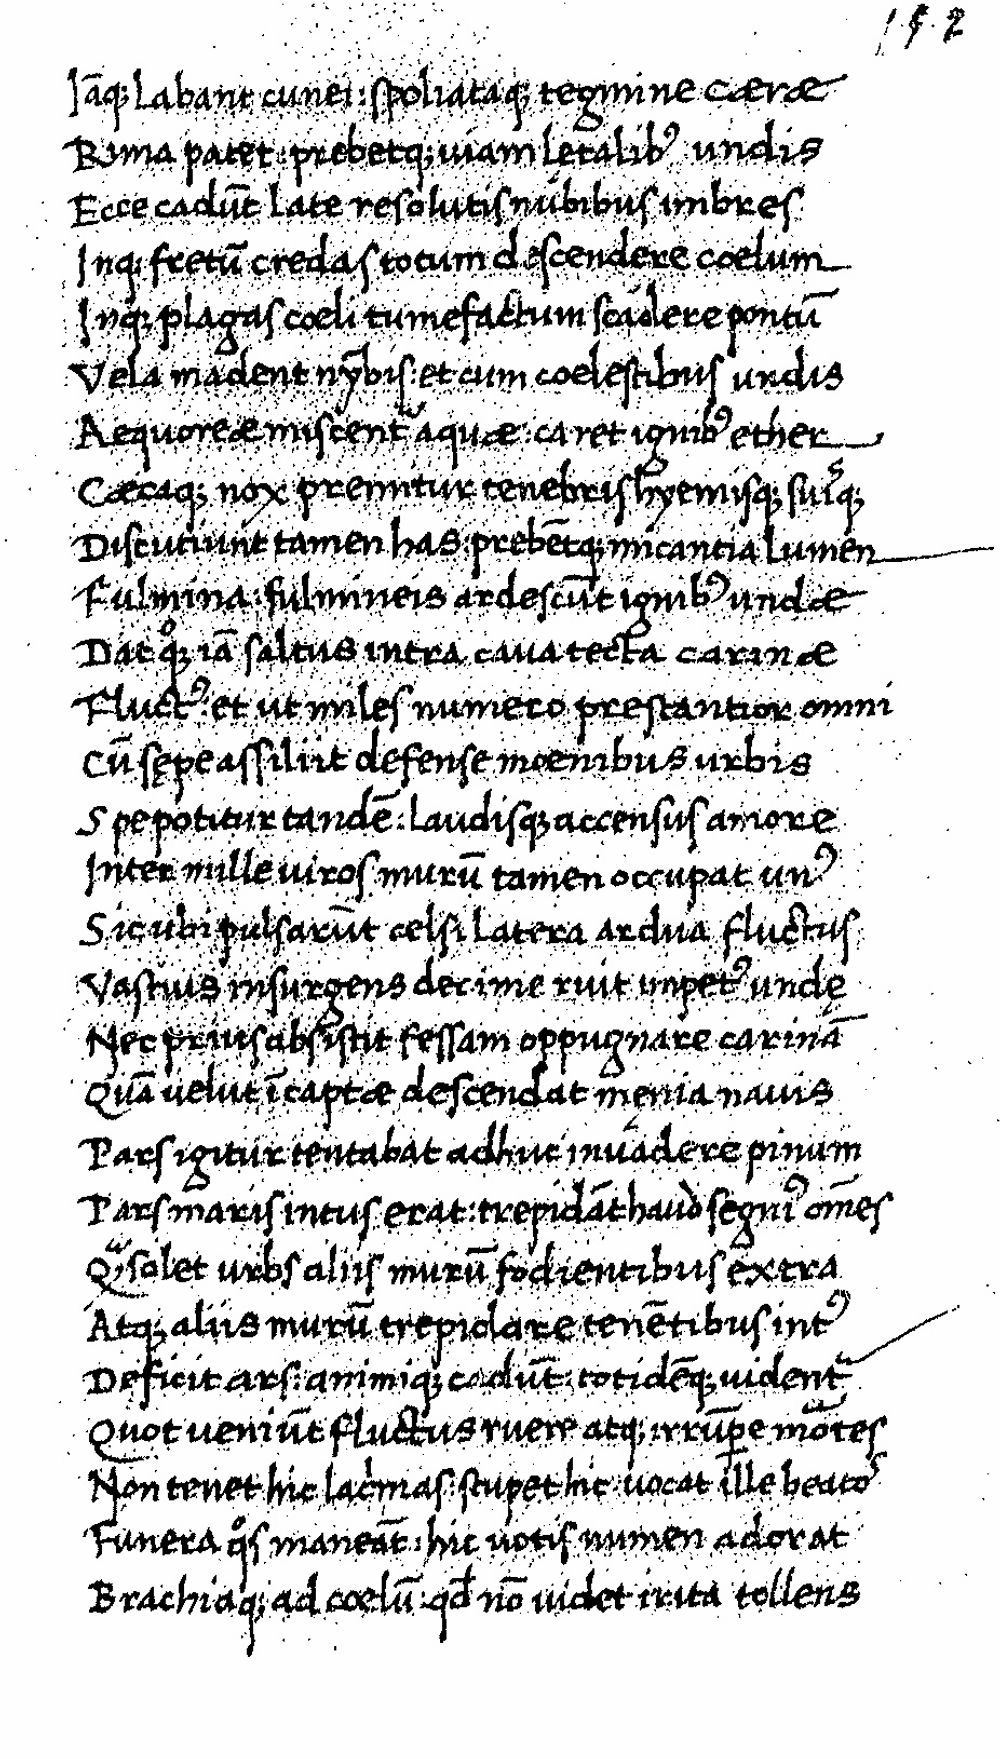 152
Iāq; labant cunei: spoliataq; tegmine cæræ
Rima patet: prebetq; uiam letalibꝰ undis
Ecce cadūt late resolutis nubibus imbres
Inq; fretū credas totum descendere coelum
Inq; plagas coeli tumefactum scādere pontū
Vela madent nybis: et cum coelestibus undis
Aequoreæ miscent᷑ aquæ: caret ignibꝰ ether
Cæcaq; nox premitur tenebris hyemisq; suisq;
Discutiunt tamen has: prebētq; micantia lumen
Fulmina: fulmineis ardescūt ignibꝰ undæ
Dat qͦq; iā saltus intra caua tecta carinæ
Fluctꝰ: et ut miles numero prestantior omni
Cū sępe assiliit defense moenibus urbis
Spe potitur tandē: laudisq; accensus amore
Inter mille uiros murū tamen occupat unꝰ
Sic ubi pulsarūt celsi latera ardua fluctus
Vastius insurgens decime ruit impetꝰ undę
Nec prius absistit fessam oppugnare carinā
Quā uelut ī captæ descendat menia nauis
Pars igitur tentabat adhuc inuadere pinum
Pars maris intus erat: trepidāt haud segniꝰ om̄es
Qͣ solet urbs aliis murū fodientibus extra
Atq; aliis murū trepidare tenētibus intꝰ
Deficit ars: animiq; cadūt: totidēq; uident᷑
Quot ueniūt fluctus ruere atq; irrūpe mōtes
Non tenet hic lacrmas: stupet hic: uocat ille beatoꝭ
Funera qͦs maneāt: hic uotis numen adorat
Brachiaq; ad coelū qd̄ nō uidet irita tollens